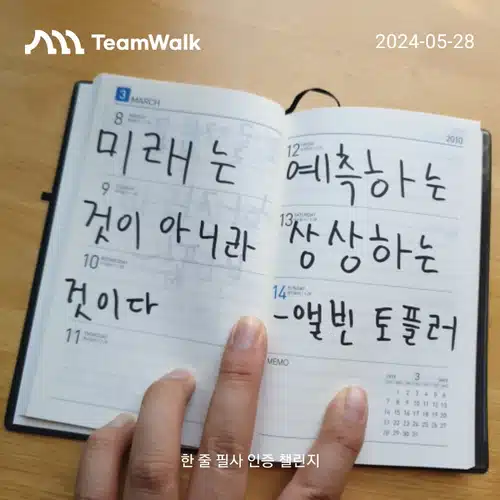 TeamWalk
2024-05-28
3 MARCH
2010
8
12
미래는 예측하는
9
13 SATURDAY
것이 아니라 상상하는
10
14 SUNDAY
것이다 -앨빈 토플러
11
MEMO
3
1 2 3 4 5 6
7 8 9 10 11 12 13
14 15 16 17 18 19 20
21 22 23 24 25 26 27
28 29 30 31
한 줄 필사 인증 챌린지